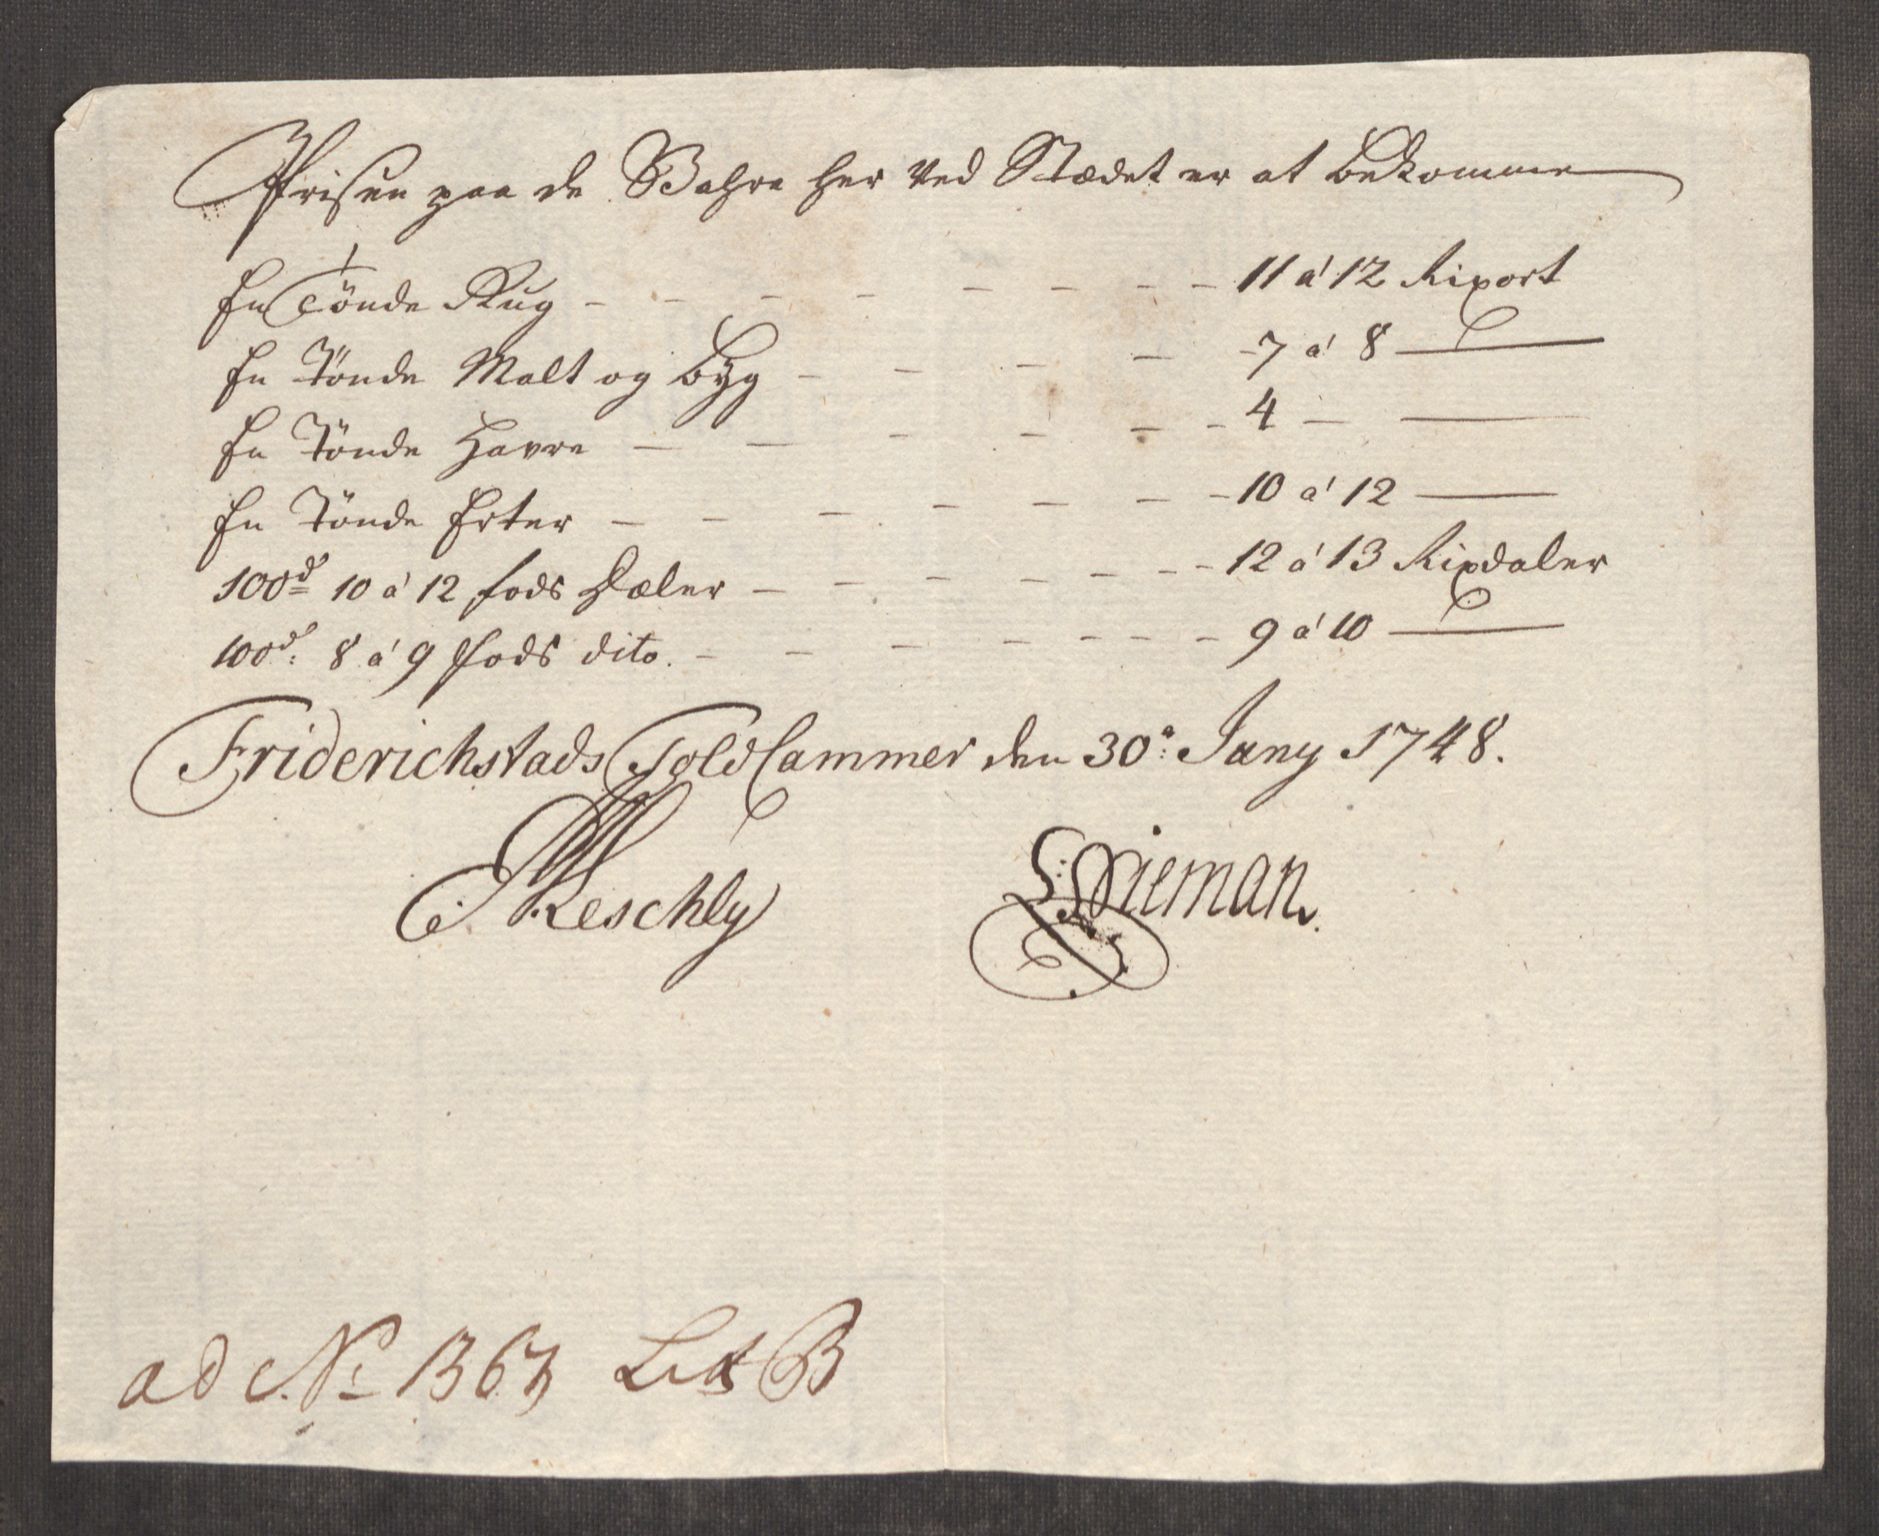 Prisen paa de Wahre her ved Stædet er at bekomme
En Tønde Rug - - - - - - - - 11 á 12 Rixort
En Tønde Malt og Byg - - - - - 7 á 8 —
En Tønde Havre - - - - - - 4 — —
En Tønde Erter - - - - - - - 10 á 12 —
100d 10 á 12 fods Dæler - - - - - - - 12 á 13 Rixdaler
100d: 8 á 9 fods dito. - - - - - - - 9 á 10 —
Friderichstads Told Cammer den 30: Juny 1748.
Reschly
S: Nieman.
ad No 1363 Lit B